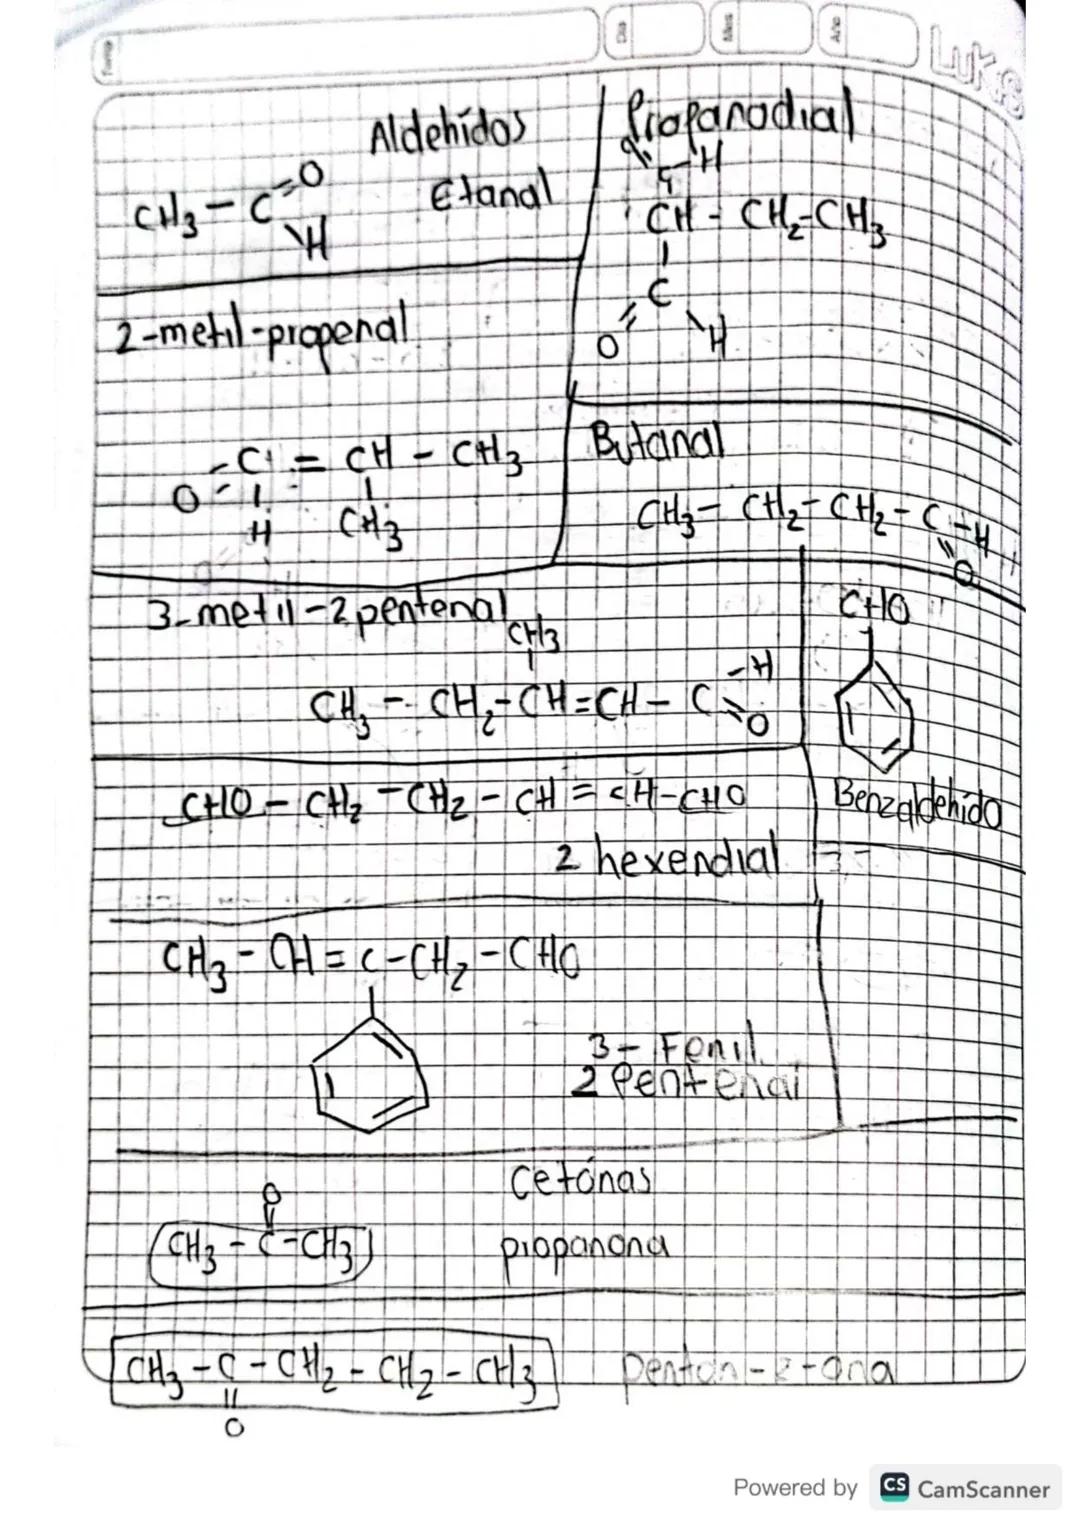 Tema
Día
Mes
Año
LUK's
Aldehídos
CH3 - C=O
H
Etanal
Propanodial
O=C-H
CH - CH2-CH3
C
O H
2-metil-propenal
O=C = CH - CH3
H CH3
Butanal
CH3 - CH2 - CH2 - C-H
O
3-metil-2pentenal
CH3
CH3 - CH2-CH=CH - C-H
O
CHO
Benzaldehído
CHO - CH2 - CH2 - CH = CH-CHO
2 hexendial
CH3 - CH = C-CH2 - CHO
3- Fenil
2 Pentenai
cetónas
O
CH3 - C-CH3
propanona
CH3 - C - CH2 - CH2 - CH3
O
pentan-2-ona
Powered by CS CamScanner